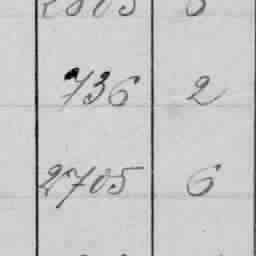 736 2
2705 6